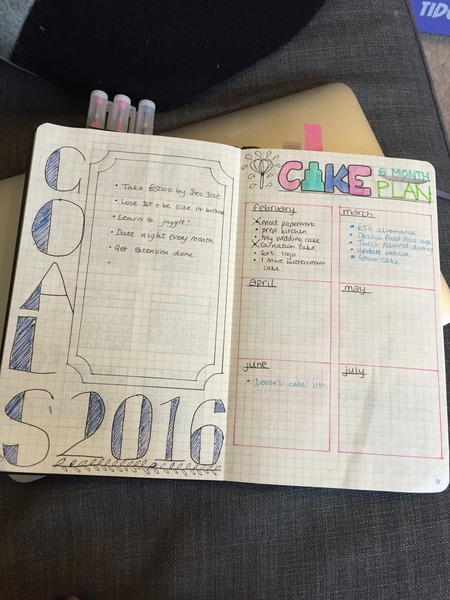 GOALS
2016
Take £5000 by Dec 31st
Lose 1st + be size 14 bottoms
Learn to juggle!
Date night every month
Get Extension done
CAKE
6 MONTH
PLAN
february
most paperwork
prep kitchen
my wedding cake
carnation cake
sort logo
1 more buttercream
cake
march
£50 allowance
Design
update website
cake
april
may
june
Devon's cake! 11th
july
TID